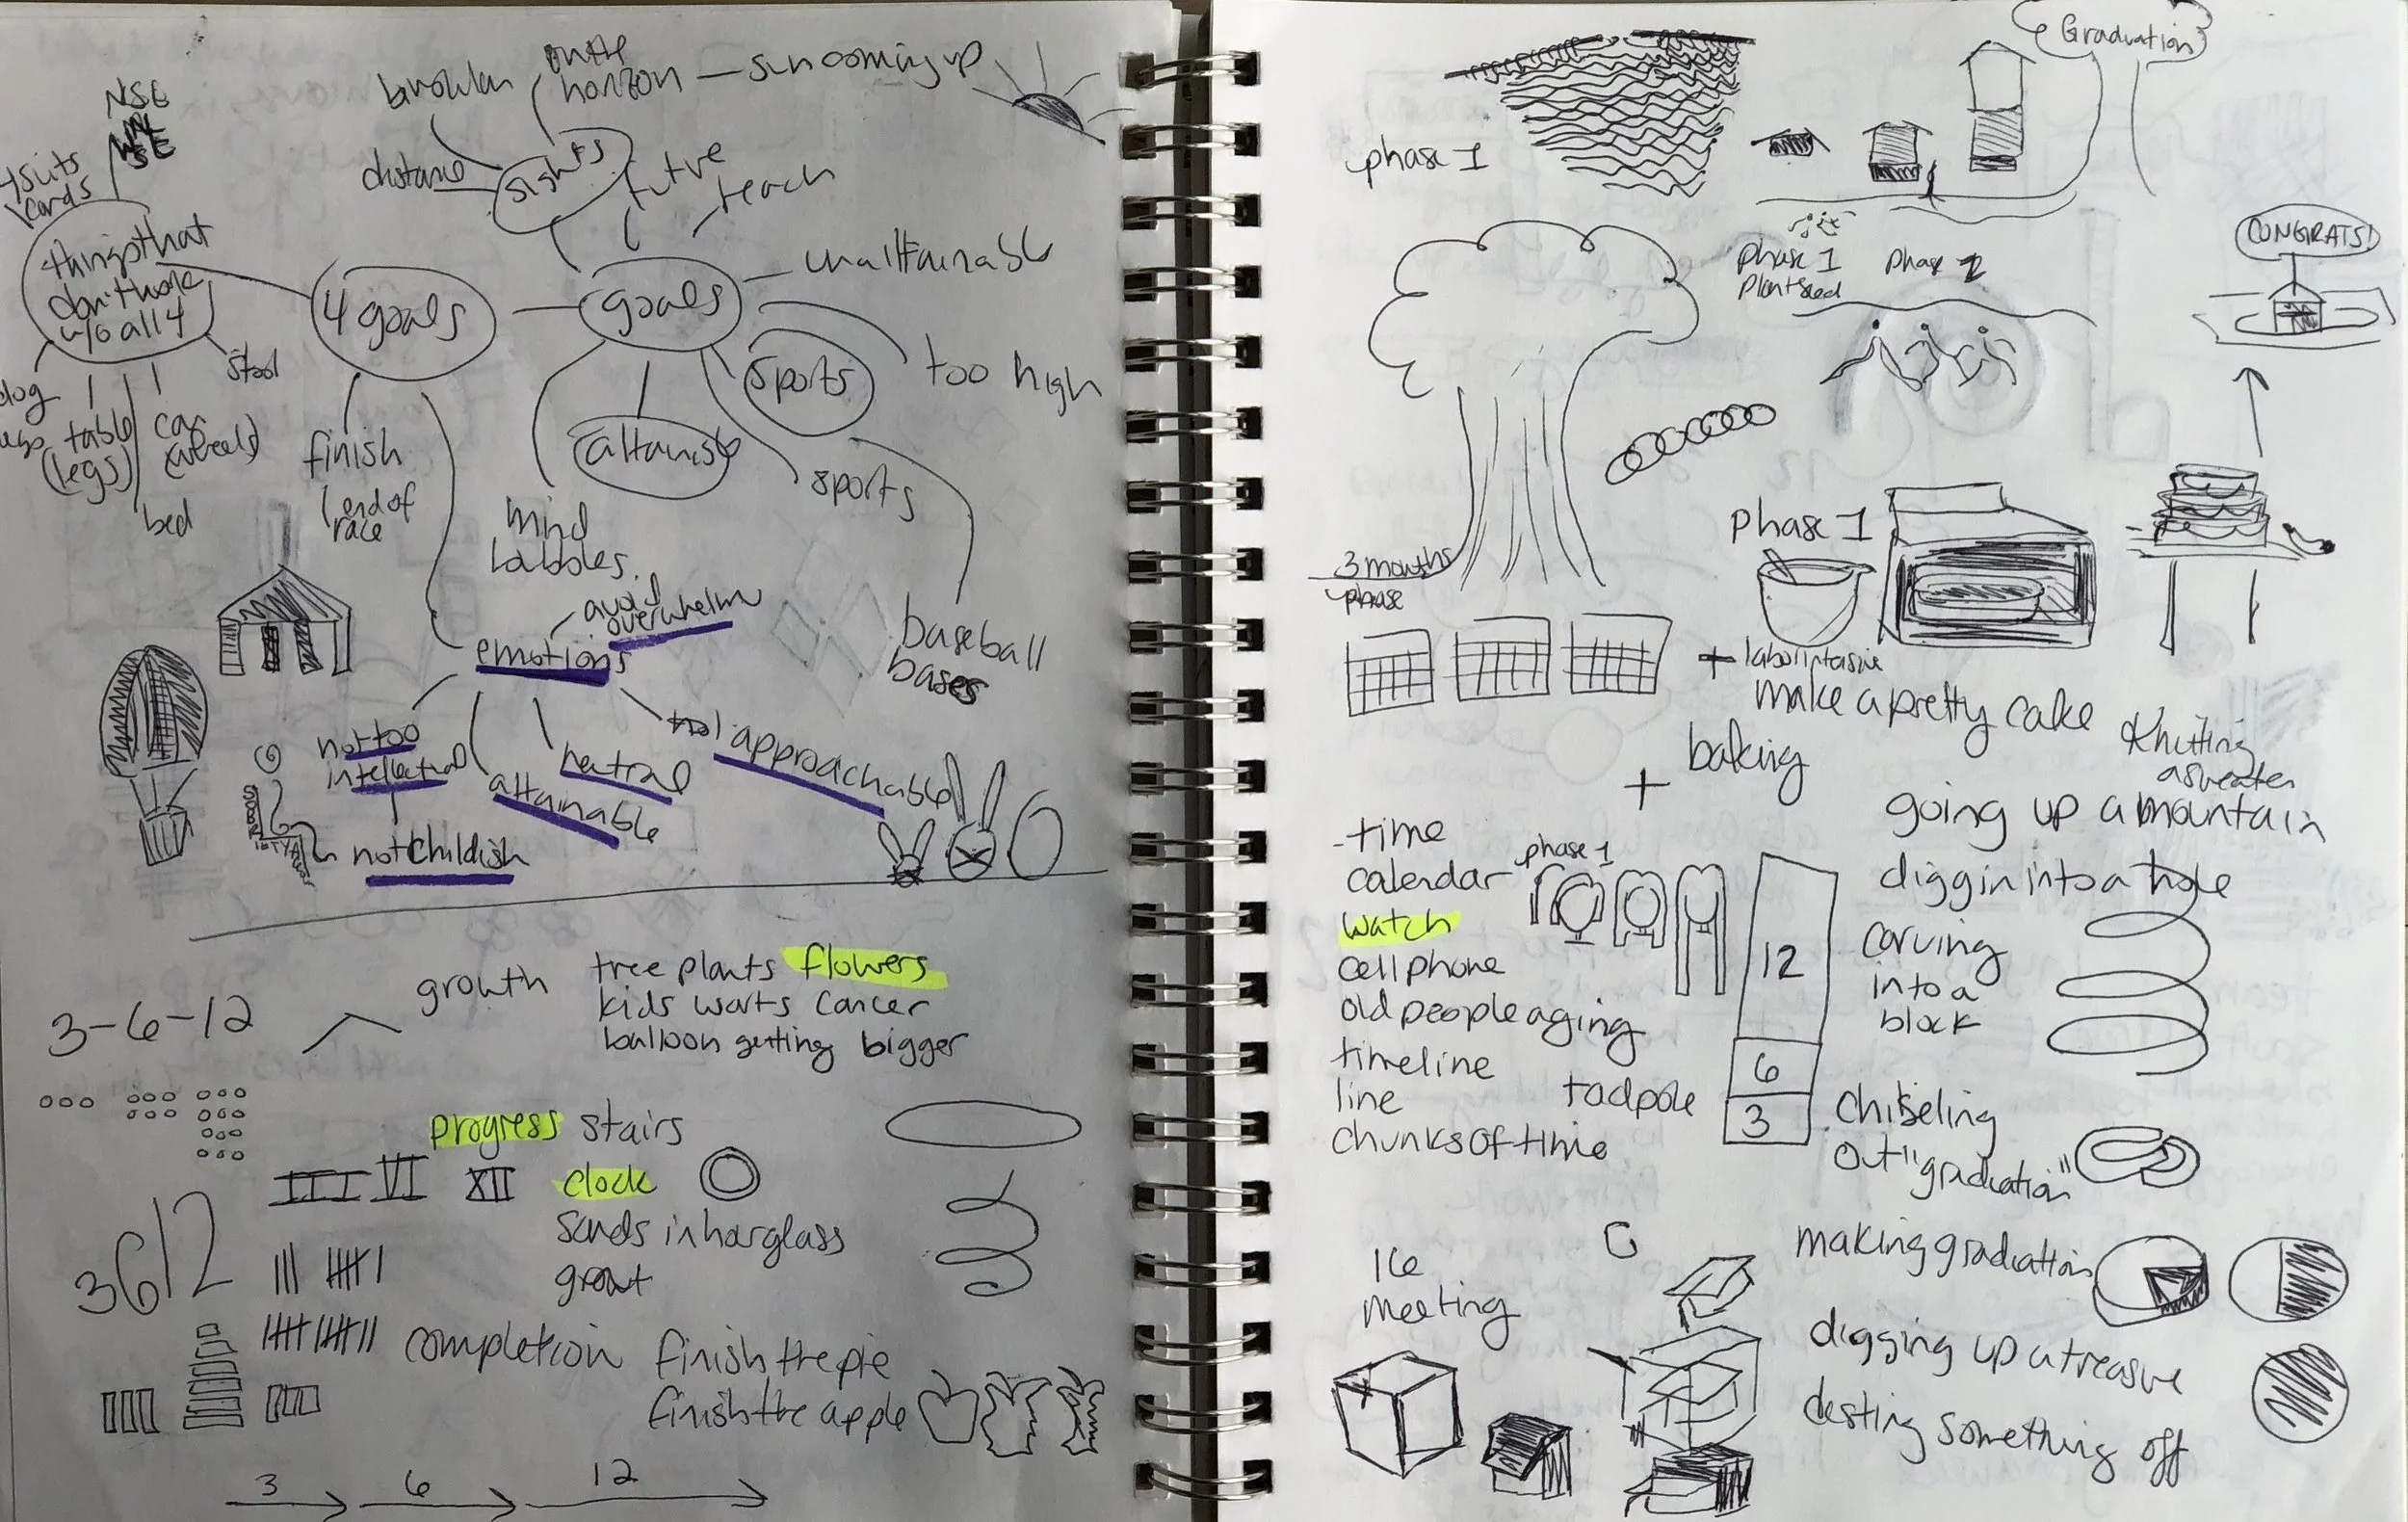 NSE
binoculars
on the
horizon — sun coming up
4 suits
cards
distance
sights
future
teach
things that
don't work
w/o all 4
4 goals
goals
unattainable
too high
sports
attainable
sports
stool
dog
legs
table
(legs)
car
(wheels)
bed
finish
end of
race
mind
bubbles
avoid
overwhelm
emotions
baseball
bases
not too
intellectual
attainable
neutral
approachable
not childish
3-6-12
growth
tree plants flowers
kids warts cancer
balloon getting bigger
progress stairs
III VI XII
clock
sands in hourglass
3612
completion
finish the pie
finish the apple
3 6 12
Graduation
phase 1
phase 1
plant seed
phase 2
CONGRATS!
3 months
phase
phase 1
+ labor intensive
make a pretty cake
baking
+
Knitting
a sweater
going up a mountain
diggin into a hole
carving
into a
block
chiseling
out "graduation"
- time
calendar
watch
cell phone
old people aging
timeline
line
chunks of time
phase 1
tadpole
12
6
3
making graduation
digging up a treasure
16
meeting
something off